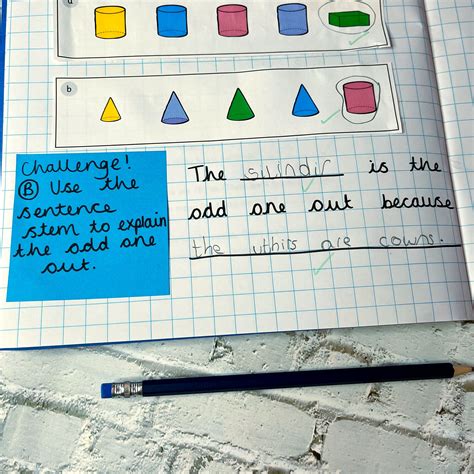 a
b
Challenge!
B Use the
sentence
stem to explain
the odd one
out.
The silindir is the
odd one out because
the uthirs are cowns.